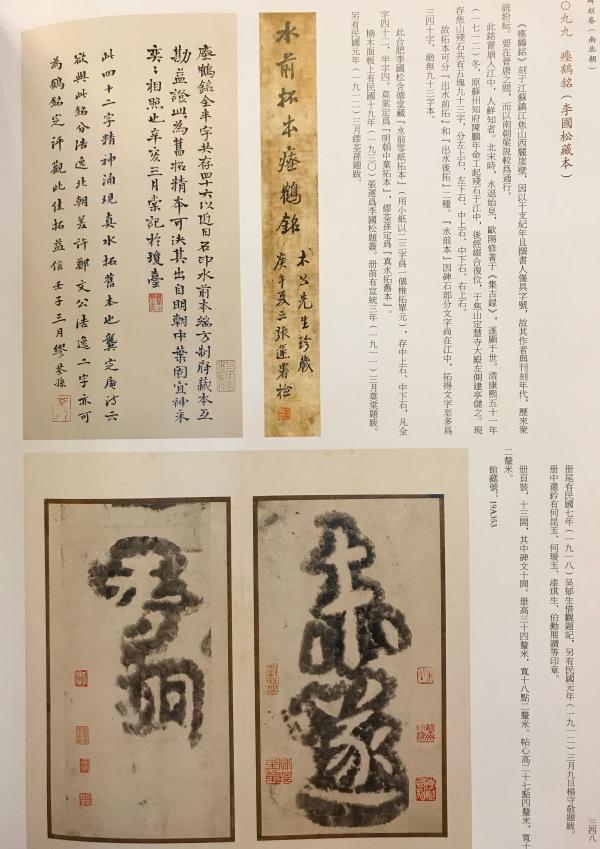 碑刻卷（南北朝）
〇九九 瘞鶴銘（李國松藏本）
《瘞鶴銘》刻于江蘇鎮江焦山西麓崖壁，因以干支紀年且撰書人僅具字號，故其作者與刊刻年代，歷來衆
說紛紜。要在晉唐之間，而以南朝梁說較爲通行。
此銘嘗崩入江中，人鮮知者。北宋時，水退始見，歐陽修著于《集古録》，遂顯于世。清康熙五十一年
（一七一二）冬，原蘇州知府陳鵬年命工起殘石于江中，後經綴合復位，于焦山定慧寺大殿左側建亭儲之。現
存焦山殘石共有五塊九十三字，分左上石、左下石、中上石、中下石、右上石。
故拓本可分「出水前拓」和「出水後拓」二種。「水前本」因碑石部分文字尚在江中，拓得文字至多爲
三四十字，絶無九十三字本。
此合肥李國松含德堂藏「水前零紙拓本」（用小紙以二三字爲一個椎拓單元），存中上石、中下石，凡全
字四十二，半字四。莫棠定爲「明朝中葉拓本」，繆荃孫定爲「真水拓舊本」。
楠木面板上有民國十九年（一九三〇）張運爲李國松題簽。册前有宣統三年（一九一一）三月莫棠題跋。
另有民國元年（一九一二）三月繆荃孫題跋。
水前拓本瘞鶴銘
木公先生珍藏
庚午夏五張運署檢
瘞鶴銘全半字共存四十六以近日石印水前本端方制府藏本互
勘益證此爲舊拓精本可決其出自明朝中葉固宜神采
奕奕相照也辛亥三月棠記於瓊臺
此四十二字精神涌現真水拓舊本也龔定庵詩云
欲與此銘分浩逸北朝差許鄭文公浩逸二字亦可
為鶴銘定評觀此佳拓益信壬子三月繆荃孫
册尾有民國七年（一九一八）吴郁生借觀題記，另有民國元年（一九一二）三月九日楊守敬題跋。
册中還鈐有何昆玉、何瑗玉、漆琪生、伯勳展讀等印章。
册頁裝，十三開，其中碑文十開。册高三十四釐米，寬十八點二釐米。帖心高二十七點四釐米，寬十
二釐米。
館藏號：19A353
上
山
遂
吾
翔
三四八